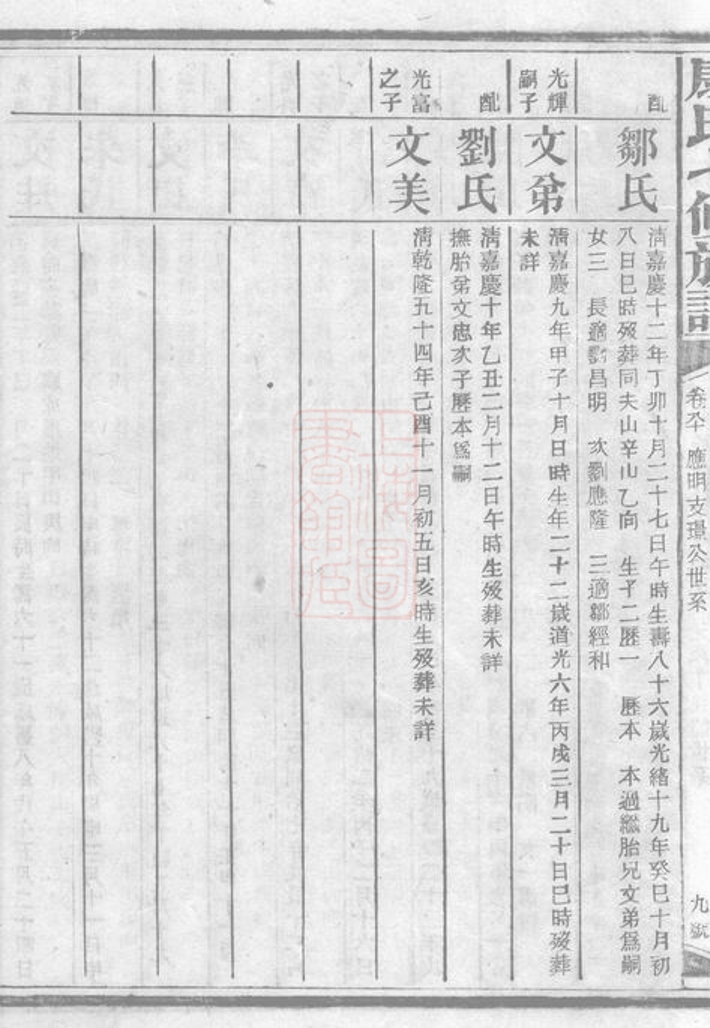 氏七修族譜
卷六 應明支璟公世系
九號
配
鄒氏
清嘉慶十二年丁卯十月二十七日午時生壽八十六歲光緒十九年癸巳十月初
八日巳時歿葬同夫山辛山乙向 生子二歷一 歷本 本過繼胎兄文弟爲嗣
女三 長適劉昌明 次劉應隆 三適鄒經和
光輝
嗣子
文弟
清嘉慶九年甲子十月日時生年二十二歲道光六年丙戌三月二十日巳時歿葬
未詳
配
劉氏
清嘉慶十年乙丑二月十二日午時生歿葬未詳
撫胎弟文忠次子歷本爲嗣
光富
之子
文美
清乾隆五十四年己酉十一月初五日亥時生歿葬未詳